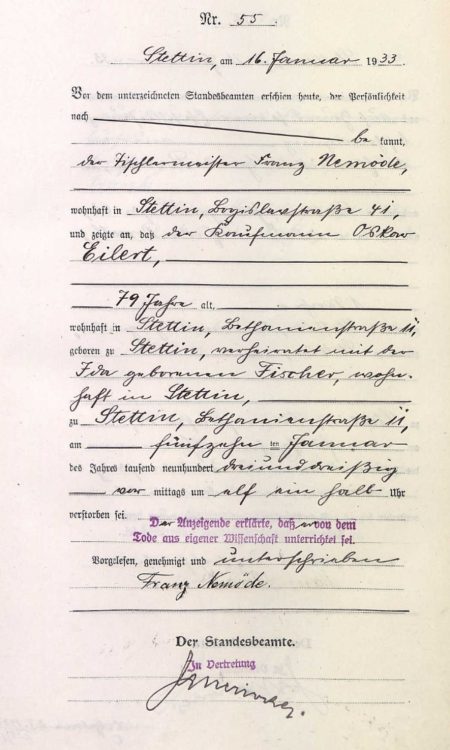 Nr. 55
Stettin, am 16. Januar 1933.
Vor dem unterzeichneten Standesbeamten erschien heute, der Persönlichkeit
nach
be kannt,
der Tischlermeister Franz Nemöde,
wohnhaft in Stettin, Bogislavstraße 41,
und zeigte an, daß der Kaufmann Oskar
Eilert,
79 Jahre alt,
wohnhaft in Stettin, Bethanienstraße 11,
geboren zu Stettin, verheiratet mit der
Ida geborenen Fischer, wohn-
haft in Stettin,
zu Stettin, Bethanienstraße 11,
am fünfzehn ten Januar
des Jahres tausend neunhundert dreiunddreißig
vor mittags um elf ein halb Uhr
verstorben sei.
Der Anzeigende erklärte, daß er von dem
Tode aus eigener Wissenschaft unterrichtet sei.
Vorgelesen, genehmigt und unterschrieben
Franz Nemöde.
Der Standesbeamte.
In Vertretung